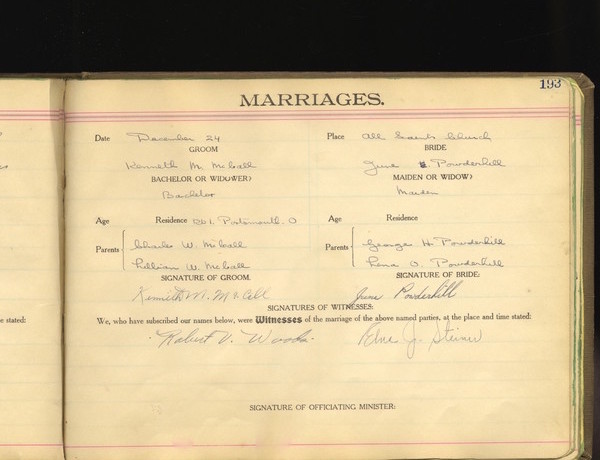 193
MARRIAGES.
Date December 24 Place All Saints Church
GROOM BRIDE
Kenneth M. McCall June Powderhill
BACHELOR OR WIDOWER? MAIDEN OR WIDOW?
Bachelor Maiden
Age Residence Rt 1. Portsmouth. O Age Residence
Parents Charles W. McCall Parents George H. Powderhill
Lillian W. McCall Lena O. Powderhill
SIGNATURE OF GROOM. SIGNATURE OF BRIDE:
Kenneth M. McCall June Powderhill
SIGNATURES OF WITNESSES:
e stated: We, who have subscribed our names below, were Witnesses of the marriage of the above named parties, at the place and time stated:
Robert V. Woods. J. Steiner
SIGNATURE OF OFFICIATING MINISTER: